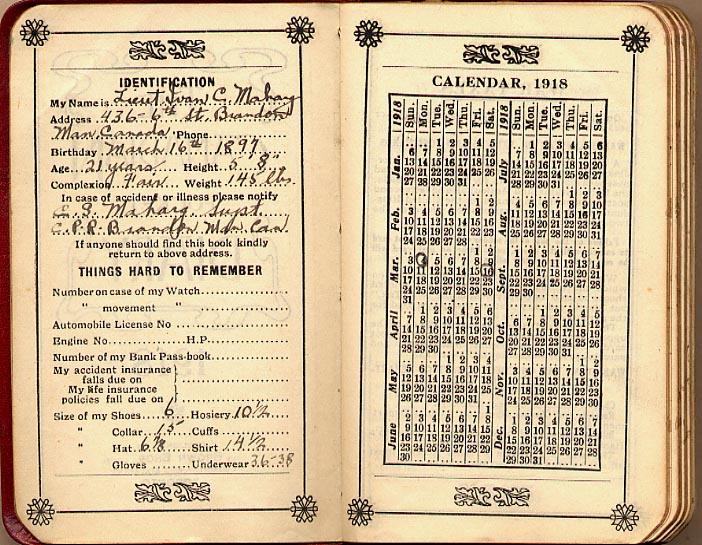 IDENTIFICATION
My Name is Lieut Ivan C. Maharg
Address 436-6th St. Brandon
Man. Canada Phone
Birthday March 16th 1897
Age 21 years Height 5' 8"
Complexion Fair Weight 145 lbs
In case of accident or illness please notify
E. G. Maharg Supt.
C.P.R. Brandon Man. Can
If anyone should find this book kindly
return to above address.
THINGS HARD TO REMEMBER
Number on case of my Watch
" movement "
Automobile License No
Engine No. H.P.
Number of my Bank Pass-book
My accident insurance
falls due on
My life insurance
policies fall due on
Size of my Shoes 6 Hosiery 10½
" Collar 15 Cuffs
" Hat 6⅞ Shirt 14½
" Gloves Underwear 36-38
CALENDAR, 1918
1918 Sun. Mon. Tue. Wed. Thu. Fri. Sat.
Jan.
1 2 3 4 5
6 7 8 9 10 11 12
13 14 15 16 17 18 19
20 21 22 23 24 25 26
27 28 29 30 31
Feb.
1 2
3 4 5 6 7 8 9
10 11 12 13 14 15 16
17 18 19 20 21 22 23
24 25 26 27 28
Mar.
1 2
3 4 5 6 7 8 9
10 11 12 13 14 15 16
17 18 19 20 21 22 23
24 25 26 27 28 29 30
31
April
1 2 3 4 5 6
7 8 9 10 11 12 13
14 15 16 17 18 19 20
21 22 23 24 25 26 27
28 29 30
May
1 2 3 4
5 6 7 8 9 10 11
12 13 14 15 16 17 18
19 20 21 22 23 24 25
26 27 28 29 30 31
June
1
2 3 4 5 6 7 8
9 10 11 12 13 14 15
16 17 18 19 20 21 22
23 24 25 26 27 28 29
30
1918 Sun. Mon. Tue. Wed. Thu. Fri. Sat.
July
1 2 3 4 5 6
7 8 9 10 11 12 13
14 15 16 17 18 19 20
21 22 23 24 25 26 27
28 29 30 31
Aug.
1 2 3
4 5 6 7 8 9 10
11 12 13 14 15 16 17
18 19 20 21 22 23 24
25 26 27 28 29 30 31
Sept.
1 2 3 4 5 6 7
8 9 10 11 12 13 14
15 16 17 18 19 20 21
22 23 24 25 26 27 28
29 30
Oct.
1 2 3 4 5
6 7 8 9 10 11 12
13 14 15 16 17 18 19
20 21 22 23 24 25 26
27 28 29 30 31
Nov.
1 2
3 4 5 6 7 8 9
10 11 12 13 14 15 16
17 18 19 20 21 22 23
24 25 26 27 28 29 30
Dec.
1 2 3 4 5 6 7
8 9 10 11 12 13 14
15 16 17 18 19 20 21
22 23 24 25 26 27 28
29 30 31